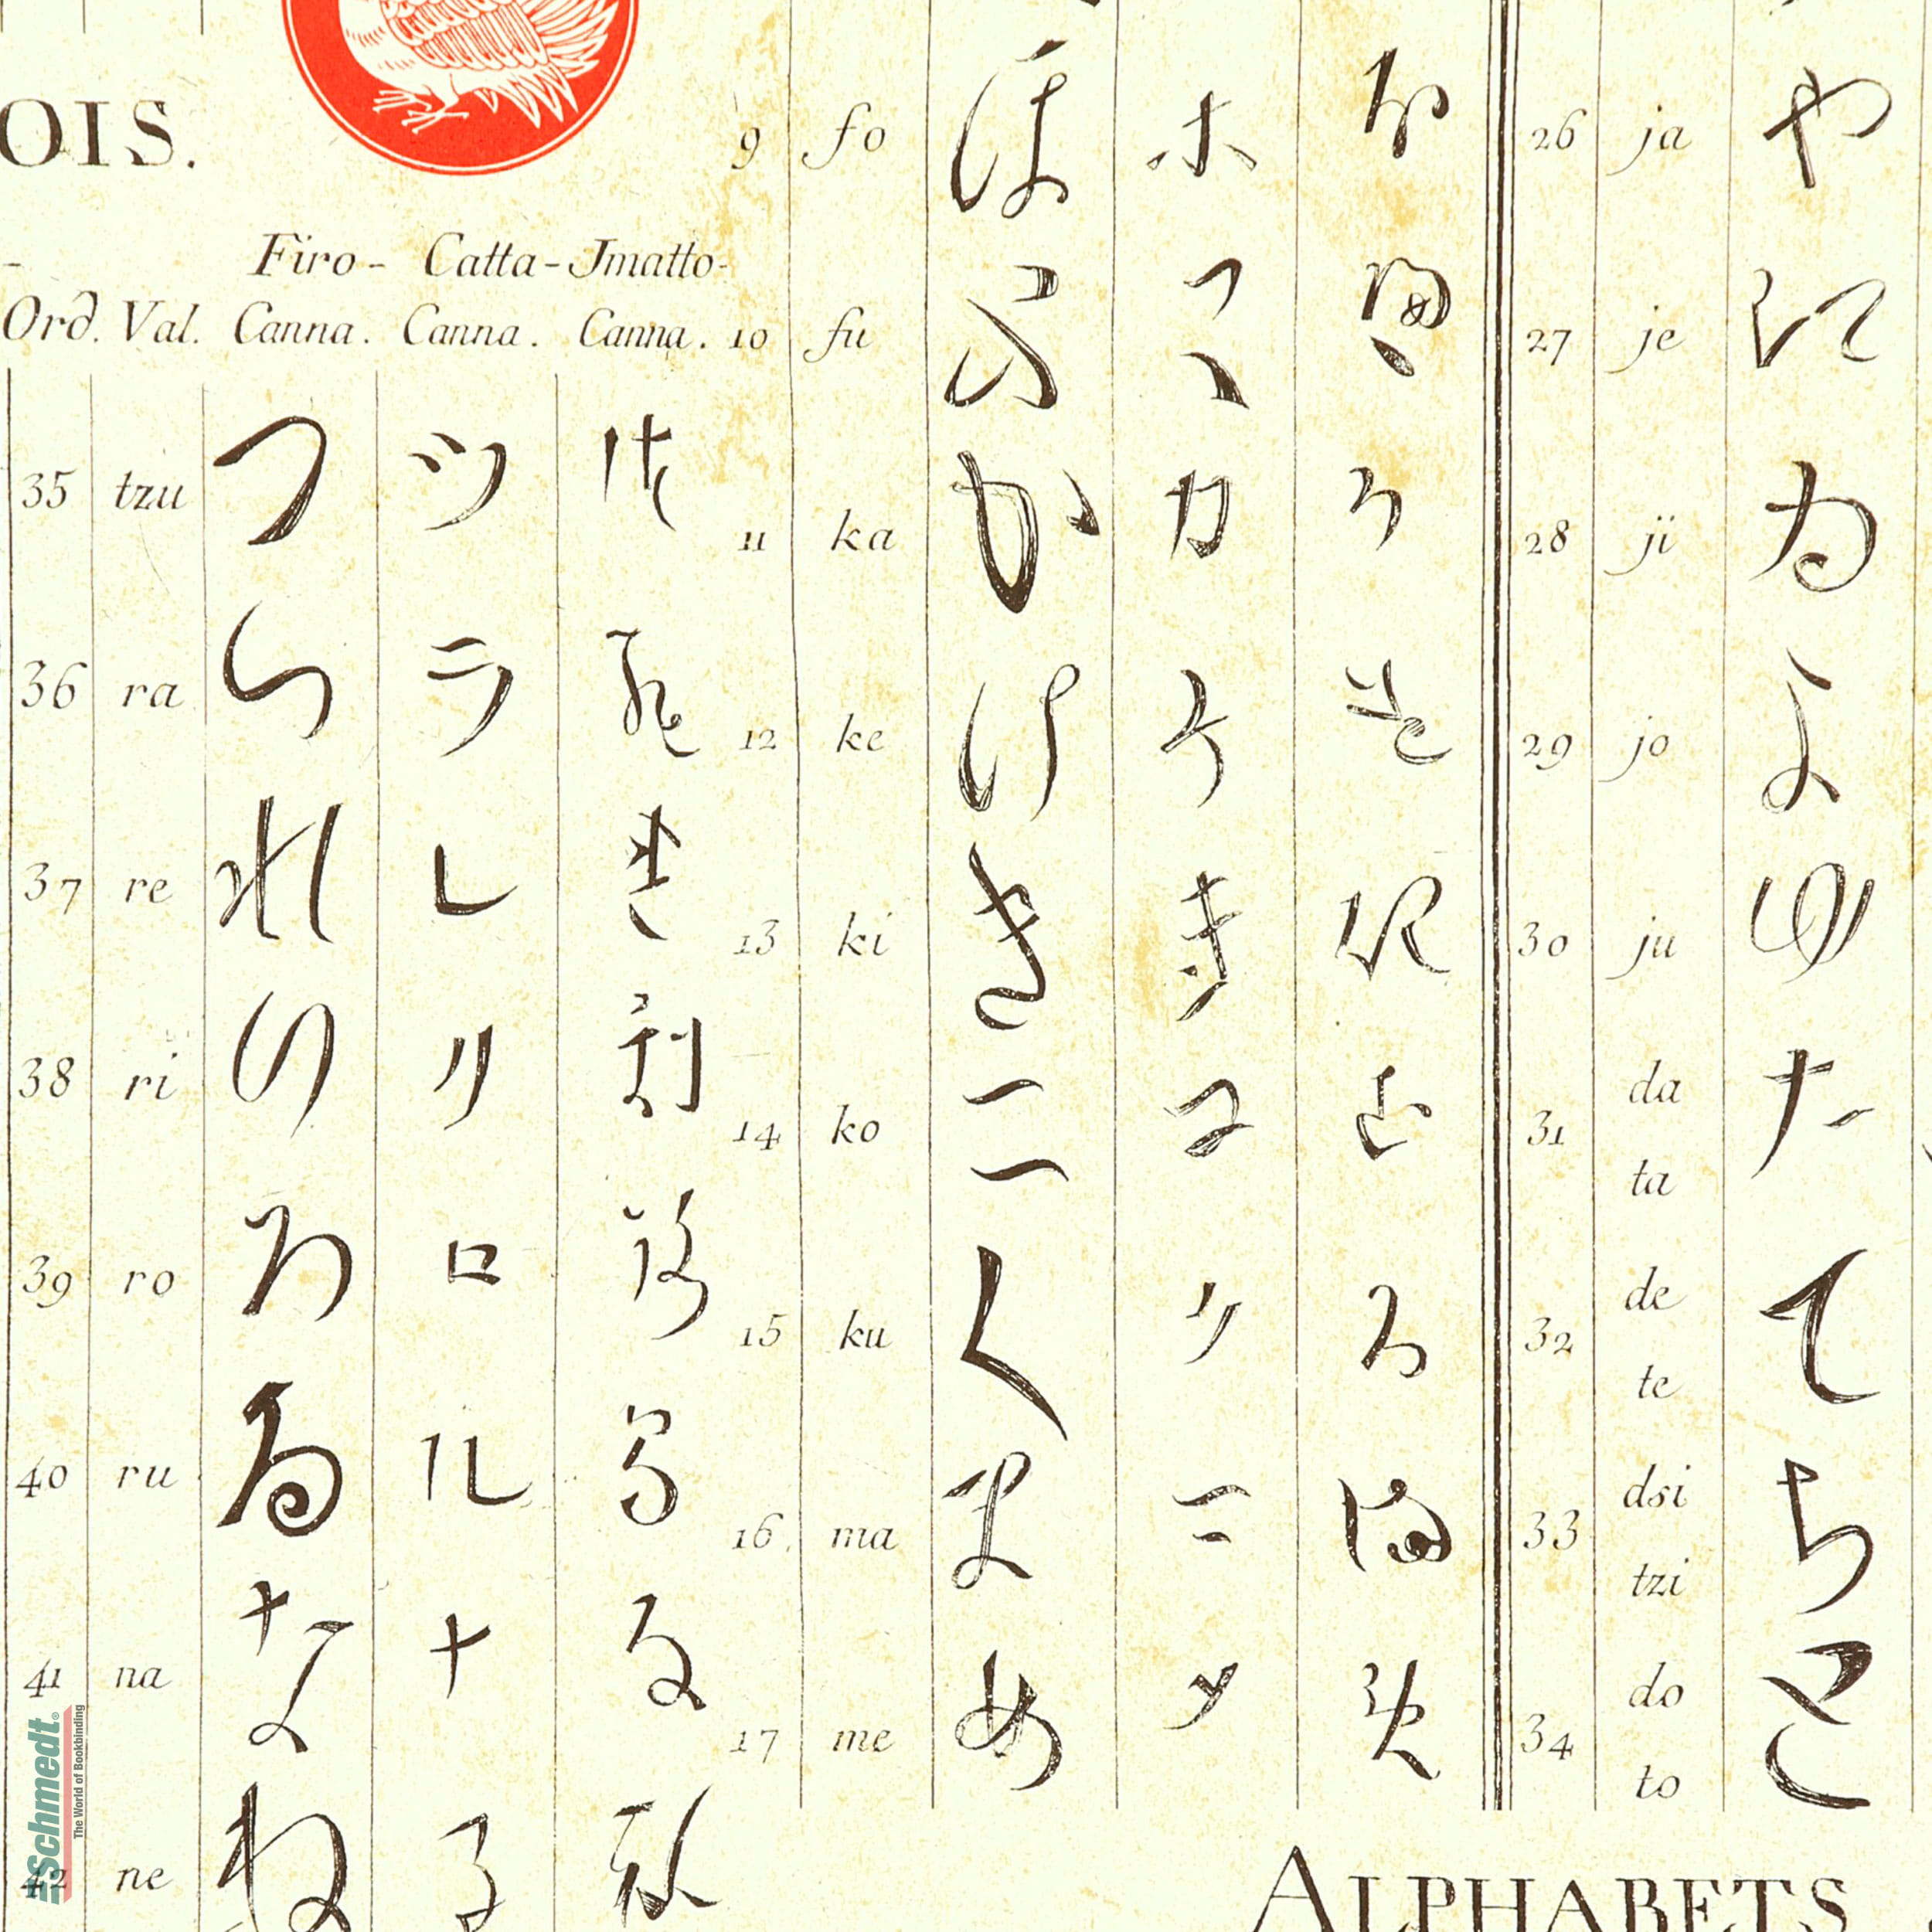 OIS.
Firo- Catta- Jmatto-
Ord. Val. Canna. Canna. Canna.
35 tzu つ ツ
36 ra ら ラ
37 re れ レ
38 ri り リ
39 ro ろ ロ
40 ru る ル
41 na な ナ
42 ne ね 子
9 fo ほ ホ
10 fu ふ フ
11 ka か カ
12 ke け ケ
13 ki き キ
14 ko こ コ
15 ku く ク
16 ma ま
17 me め メ
26 ja や
27 je
28 ji ゐ
29 jo よ
30 ju ゆ
31 da ta た
32 de te て
33 dsi tzi ち
34 do to と
ALPHABETS
Schmedt®
The World of Bookbinding